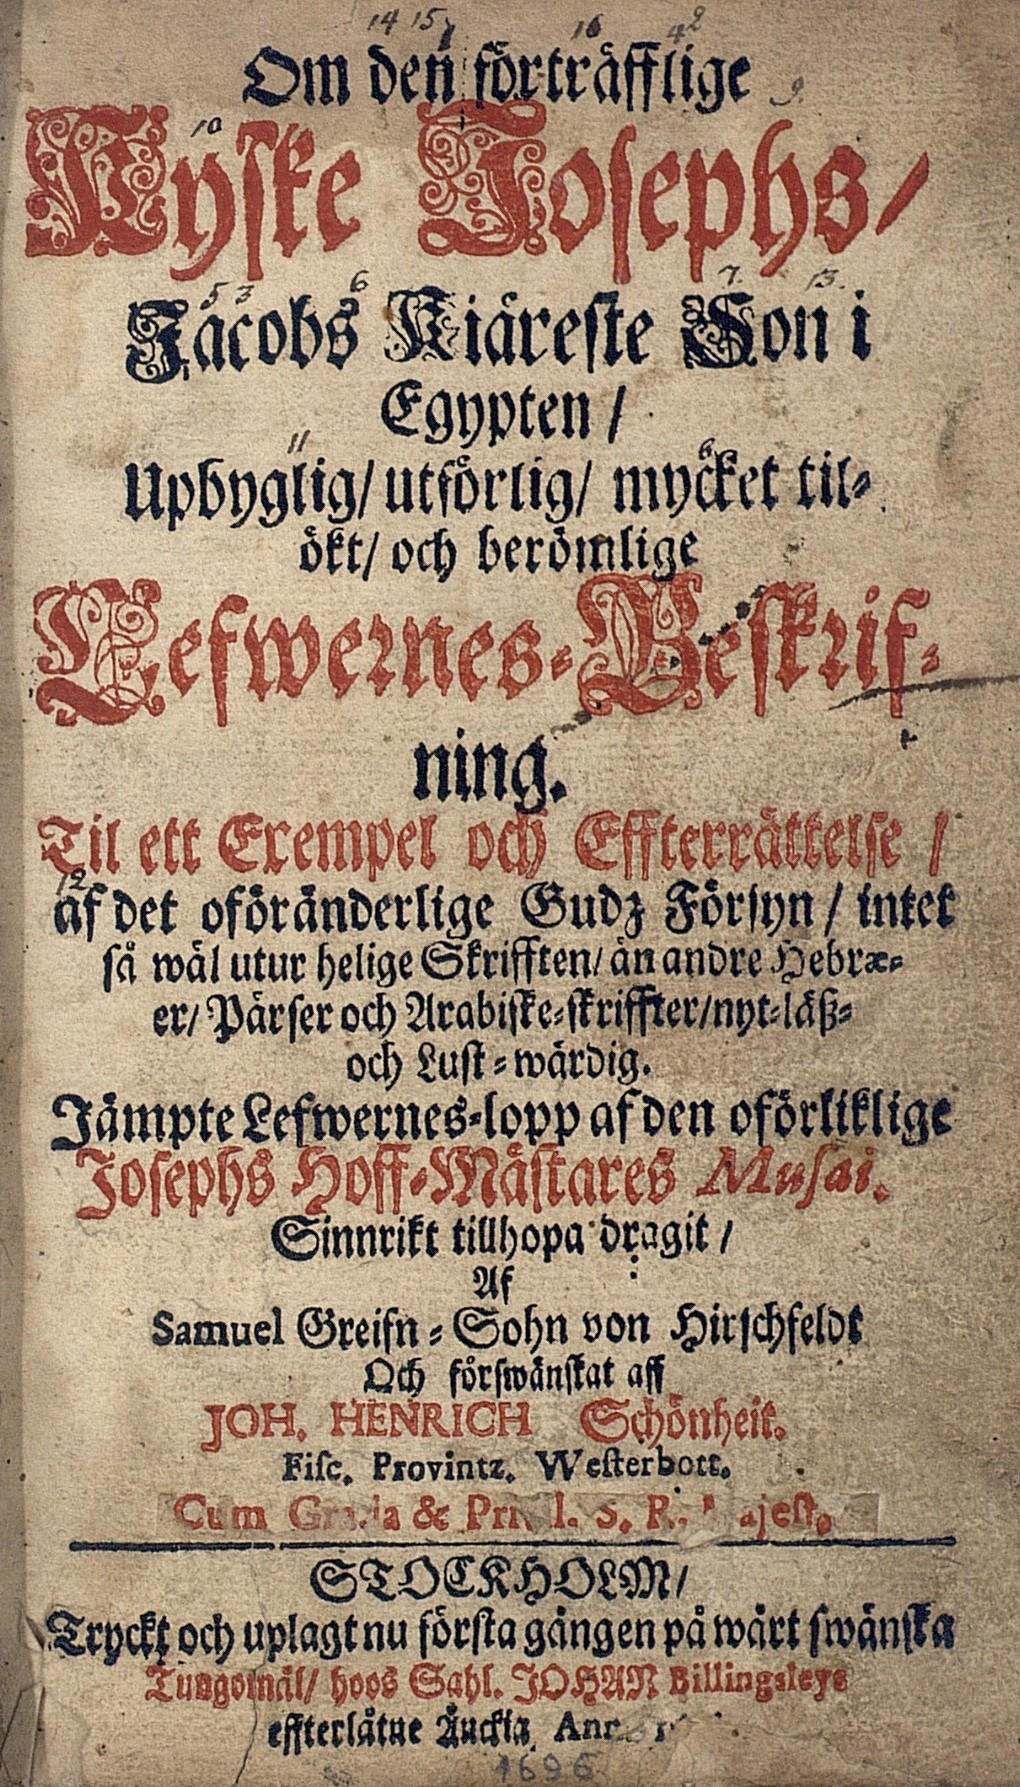 14 15 16 4 2
Om den förträfflige
9.
10
Kyske Josephs/
5 3 6 7. 13.
Jacobs Kiäreste Son i
Egypten /
11
Upbyglig/ utförlig/ mycket til-
ökt/ och berömlige
Lefwernes-Beskrif-
ning.
Til ett Exempel och Effterrättelse /
12
af det oföränderlige Gudz Försyn / intet
så wäl utur helige Skrifften/ än andre Hebræ-
er/ Pärser och Arabiske-skriffter/nyt-läß-
och Lust-wärdig.
Jämpte Lefwernes-lopp af den oförliklige
Josephs Hoff-Mästares Musai.
Sinnrikt tillhopa dragit /
Af
Samuel Greifn-Sohn von Hirschfeldt
Och förswänskat aff
JOH. HENRICH Schönheit.
Fisc. Provintz. Westerbott.
Cum & S. R.
STOCKHOLM/
Tryckt och uplagt nu första gången på wårt swänska
Tungomål/ hoos Sahl. JOHAN Billingsleys
effterlåtne Änckia
1696